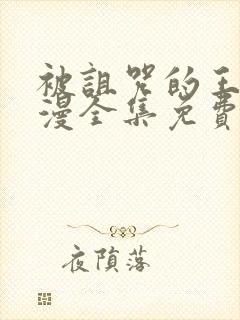 被诅咒的王
漫全集免费
夜陨落